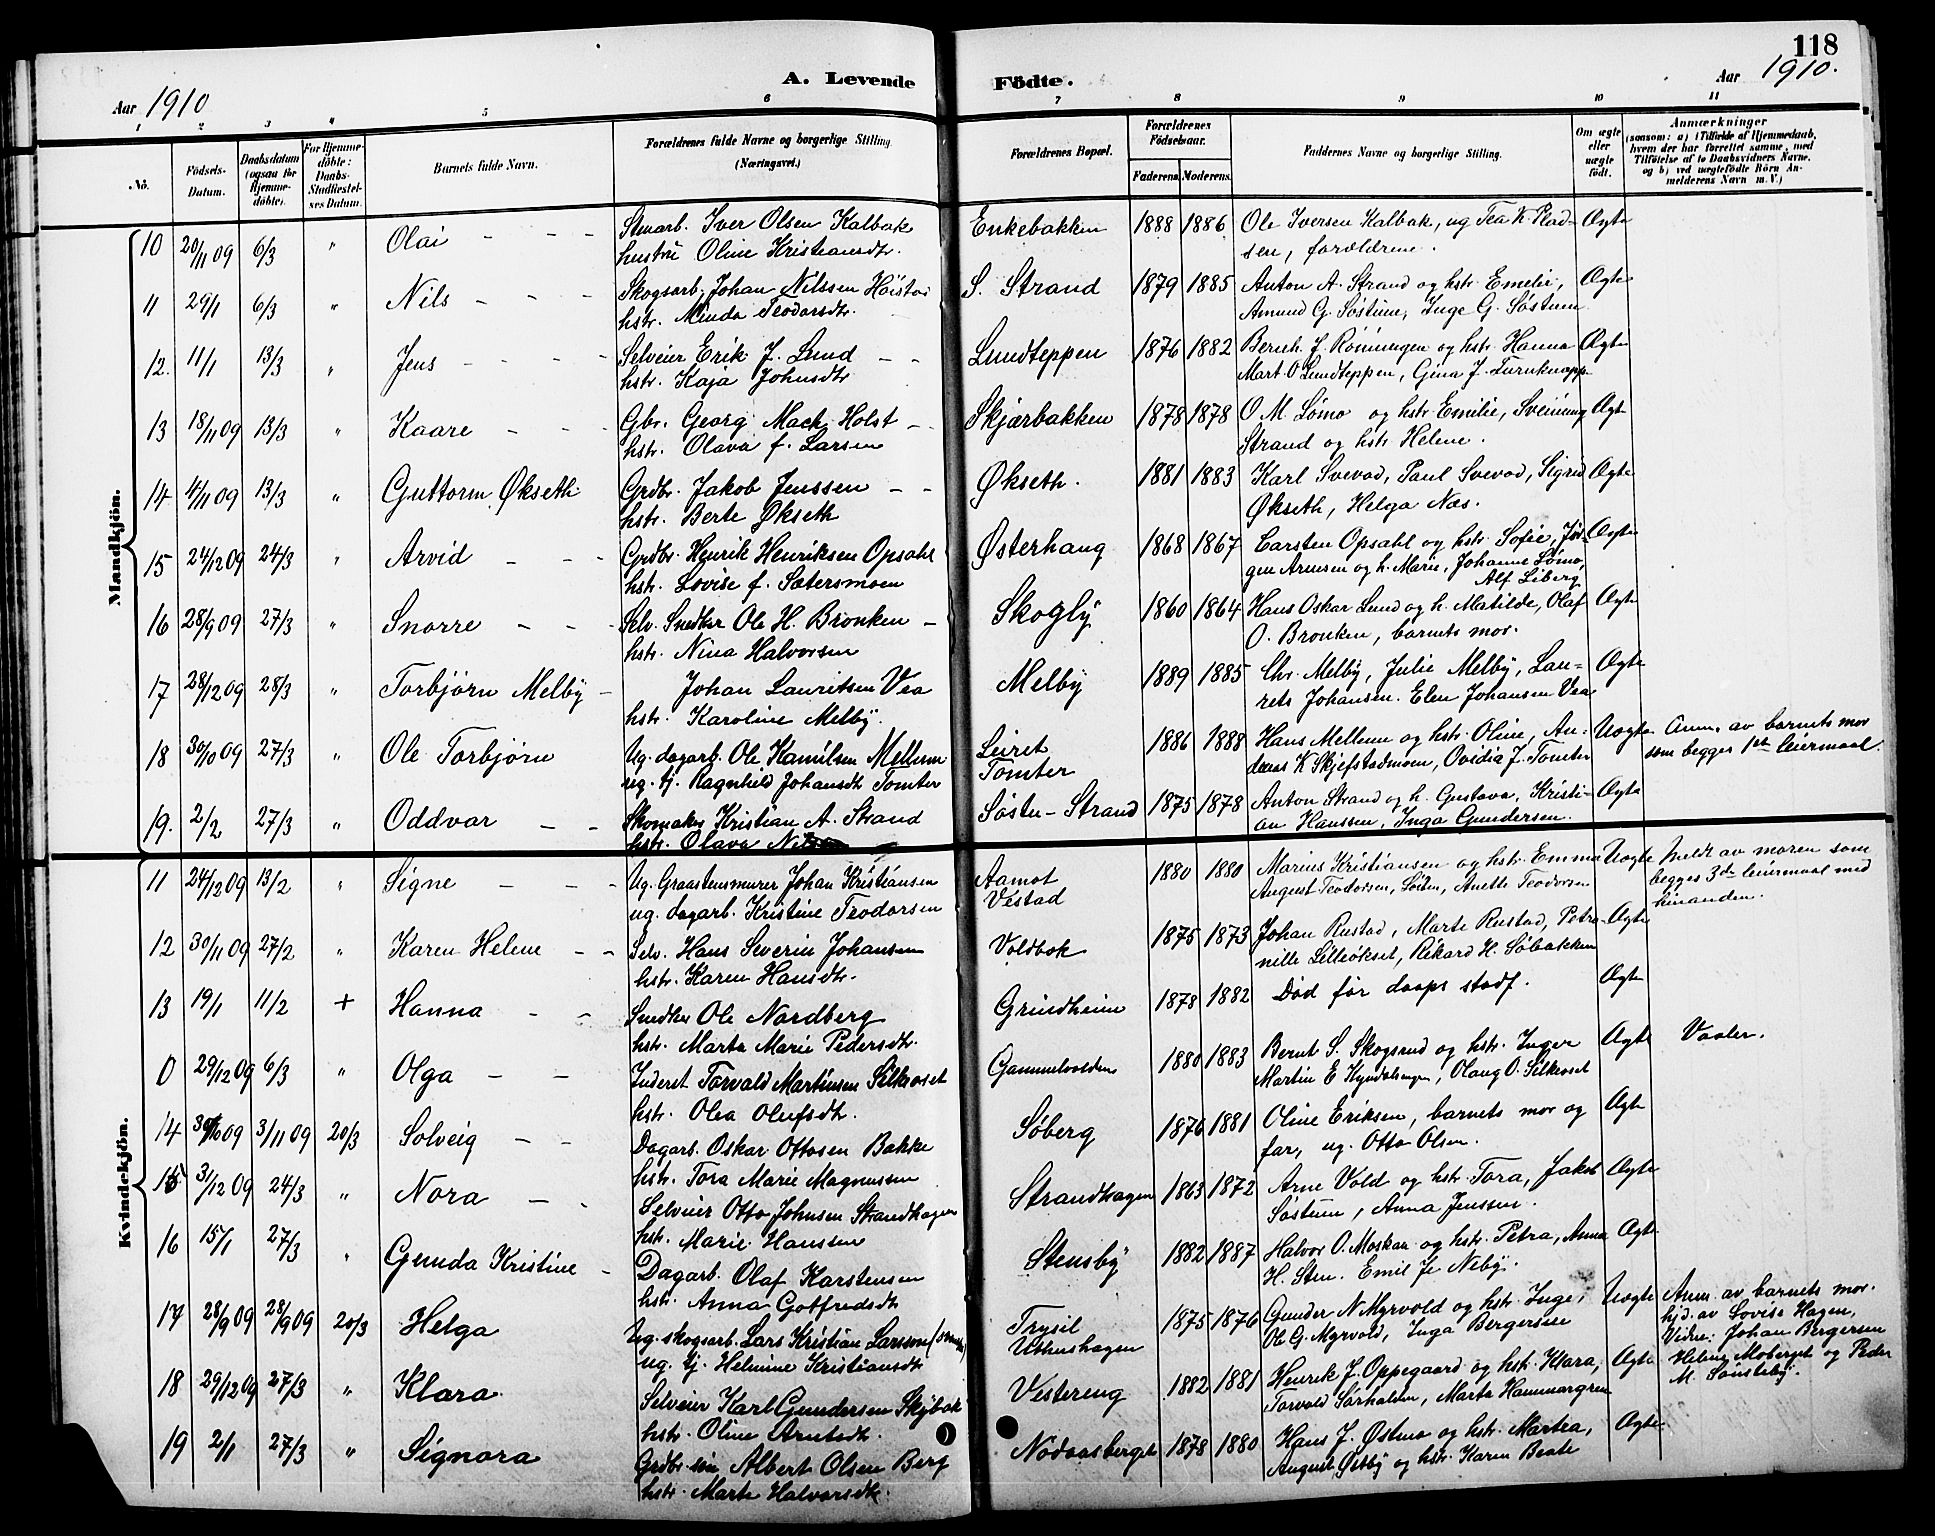 118
A. Levende Födte.
Aar 1910
Aar 1910.
1 2 3 4 5 6 7 8 9 10 11
No.
Födsels-Datum.
Daabsdatum (ogsaa for Hjemme-döbte).
For Hjemme-döbte: Daabs-Stadfæstel-ses Datum.
Barnets fulde Navn.
Forældrenes fulde Navne og borgerlige Stilling (Næringsvei.)
Forældrenes Bopæl.
Forældrenes Födselsaar.
Faderens. Moderens.
Faddernes Navne og borgerlige Stilling.
Om ægte eller uægte födt.
Anmærkninger
(saasom: a) i Tilfælde af Hjemmedaab, hvem der har forrettet samme, med Tilföielse af to Daabsvidners Navne, og b) ved uægtefödte Börn Anmelderens Navn m. V.)
Mandkjön.
10 20/11 09 6/3 " Olai - - - Stenarb. Iver Olsen Kalbak Enkebakken 1888 1886 Ole Iversen Kalbak, ug Tea K. Plad- Ægte
hustru Oline Kristiansdtr. sen, forældrene.
11 29/1 6/3 " Nils - - - Skogsarb. Johan Nilssen S. Strand 1879 1885 Anton A. Strand og hstr. Emelie, Ægte
hstr. Minda Teodorsdtr. Amund G. Søstuen, Inge G. Søstuen
12. 11/1 13/3 " Jens - - - Selveier Erik J. Lund - - Lundteppen 1876 1882 Bernh. J. Rönningen og hstr. Hanna Ægte
hstr. Kaja Johnsdtr Mart. O Lundteppen, Gina J. Furuknapp
13 18/11 09 13/3 " Kaare - - - Gbr. Georg Mack Holst - - Skjærbakken 1878 1878 O. M. Sømo og hstr Emilie, Sveinung Ægte
hstr. Olava f. Larsen Strand og hstr Helene.
14 4/11 09 13/3 " Guttorm Økseth Grdbr. Jakob Jenssen - - Økseth. 1881 1883 Karl Svevad, Paul Svevad, Sigrid Ægte
hstr. Berte Økseth Økseth, Helga Næs.
15 24/12 09 24/3 " Arvid - - Grdbr. Henrik Henriksen Opsahl Østerhaug 1868 1867 Carsten Opsahl og hstr Sofie, Jör- Ægte
hstr. Lovise f. Sætersmoen gen Arnesen og h. Marie, Johanne Sømo,
Alf Liberg
16 28/9 09 27/3 " Snorre - - - Selv. Snedker Ole H. Bronken - Skogly 1860 1864 Hans Oskar Lund og h. Matilde, Olaf Ægte
hstr. Nina Halvorsen O. Bronken, barnets mor.
17 28/12 09 28/3 " Torbjørn Melby - Johan Lauritsen Vea Melby 1889 1885 Chr. Melby, Julie Melby, Lau- Ægte
hstr. Karoline Melby. rets Johansen. Elen Johansen Vea
18 30/10 09 27/3 " Ole Torbjørn Ug. dagarb. Ole Kamilsen Mellem Leiret 1886 1888 Hans Mellem og hstr Oline, An- Uægte Anm. av barnets mor
ug. tj. Ragnhild Johansdt Tomter Tomter dreas K Skjefstadmoen, Ovidia J. Tomter som begges 1ste leiermaal.
19. 2/2 27/3 " Oddvar - - Skomaker Kristian A. Strand Søstu-Strand 1875 1878 Anton Strand og h. Gustava, Kristi- Ægte
hstr. Olava an Hanssen, Inga Gundersen.
Kvindekjön.
11 24/12 09 13/2 " Signe - - - Ug. Graastensmurer Johan Kristiansen Aamot 1880 1880 Marius Kristiansen og hstr. Emma Uægte Meldt av moren som
ug. dagarb. Kristine Teodorsen Vestad August Teodorsen, Anette Teodorsen begges 3die leiermaal med
hinanden.
12 30/11 09 27/2 " Karen Helene - - Selv. Hans Severin Johansen Voldbok 1875 1873 Johan Rustad, Marte Rustad, Petra Ægte
hstr. Karen Hansdtr. nille Lilleøkset, Rikard H. Søbakken
13 19/1 11/2 + Hanna - - Snedker Ole Nordberg Grindheim 1878 1882 Død før daaps stadf. Ægte
hstr. Marta Marie Pedersdtr.
0 29/12 09 6/3 " Olga - - Inderst Torvald Martinsen Silkeoset Gammelvolden 1880 1883 Bernt S. Skogsrud og hstr. Inger Ægte Vaaler.
hstr. Olea Olufsdtr. Martin E , Olaug O. Silkeoset
14 30/10 09 3/11 09 20/3 Solveig - - Dagarb. Oskar Ottosen Bakke Søberg 1876 1881 Oline Eriksen, barnets mor og Ægte
hstr. Tora Marie Magnussen far, ug. Otto Olsen.
15 31/12 09 24/3 " Nora - - Selveier Otto Johnsen Strandhagen Strandhagen 1863 1872 Arne Vold og hstr. Tora, Jakob Ægte
hstr. Marie Hanssen Søstuen, Anna Jenssen.
16 15/1 27/3 " Gunda Kristine - Dagarb. Olaf Karstensen Stensby 1882 1887 Halvor O. Moskar og hstr. Petra, Anna Ægte
hstr. Anna Gotfredsdt H. Sten. Emil Jr Neby.
17 28/9 09 28/9 09 20/3 Helga Ug. skogsarb. Lars Kristian Larsson Trysil 1875 1876 Gunder N Myrvold og hstr. Inge, Uægte Anm. av barnets mor.
ug. tj. Helmine Kristiansdt Ole G. Myrvold, Inga Bergersen hjd. av Lovise Hagen,
Vidne: Johan Bergersen
18 29/12 09 27/3 " Klara Selveier Karl Gundersen Skybak Vestereng 1882 1881 Henrik J. Oppegaard og hstr. Klara, Ægte Moberget og Peder
hstr. Oline Arntsdt. Torvald Sørhalden, Marta Hammargren M. Sønsteby.
19 2/1 27/3 " Signora Grdbr. søn Albert Olsen Berg Nodaasberget 1878 1880 Hans J. Østmo og hstr. Martea, Ægte
hstr. Marte Halvorsdtr. August Østby og hstr. Karen Beate